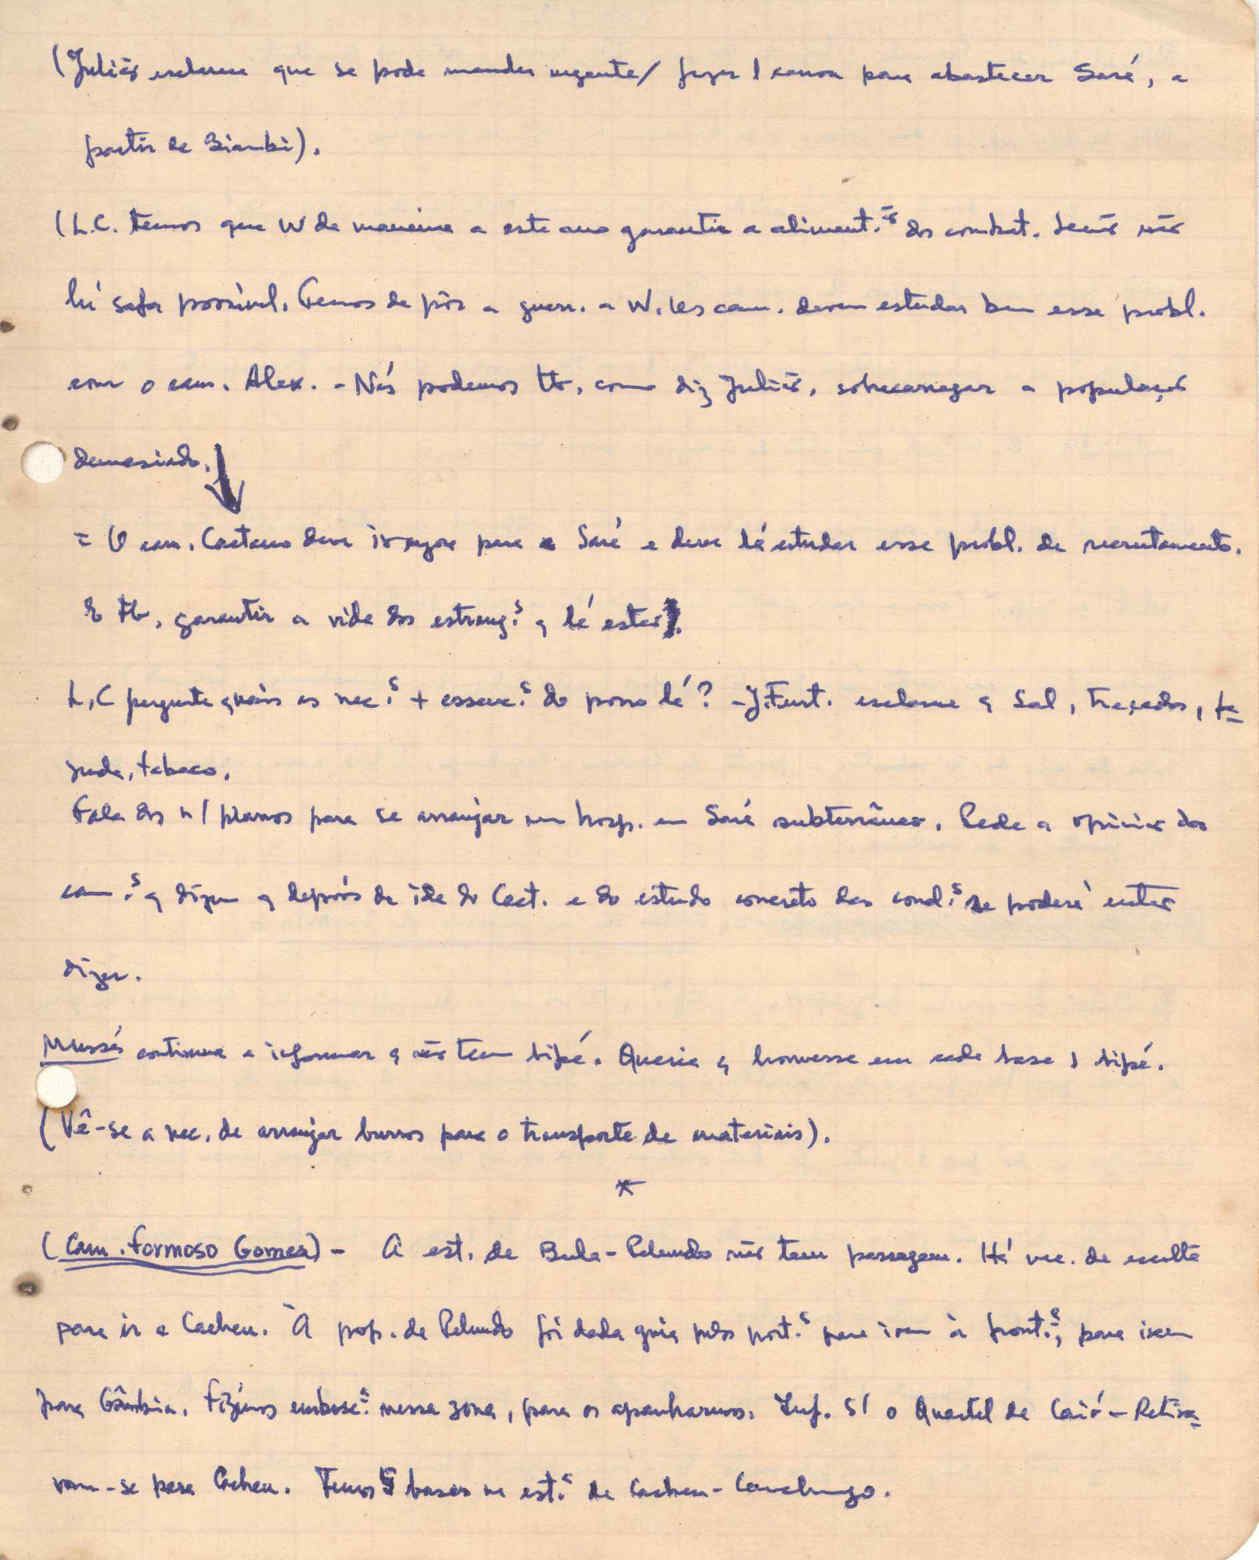 (Julião esclarece que se pode mandar urgente/ fazer 1 canoa para abastecer Sará, a
partir de Biambi).
(L.C. temos que W de maneira a este ano garantir a aliment.ão dos combat. Senão não
há safa possível. Temos de pôr a guerr. a W. Os cam. devem estudar bem esse probl.
com o cam. Alex. - Nós podemos tb, como diz Julião, sobrecarregar a população
demasiado.
= O cam. Caetano deve ir agora para Sará e deve lá estudar esse probl. de recrutamento.
E tb, garantir a vida dos estrang.s q lá estão).
L.C pergunta quais as nec.s + essenc.s do povo lá? - J.Furt. esclarece q Sal, traçados, fa-
zenda, tabaco.
Fala dos n/ planos para se arranjar um hosp. em Sará subterrâneo. Pede a opinião dos
cam.s q dizem q depois da ida do Caet. e do estudo concreto das cond.s se poderá então
dizer.
Mussá continua a informar q não tem bipé. Queria q houvesse em cada base 1 bipé.
(Vê-se a nec. de arranjar burros para o transporte de materiais).
*
(Cam. Formoso Gomes) - A est. de Bula-Pelundo não tem passagem. Há nec. de escolta
para ir a Cacheu. À pop. de Pelundo foi dada guia pelos port.s para irem à front.ª, para irem
para Gâmbia. Fizémos embosc.s nessa zona, para os apanharmos. Inf. s/ o Quartel de Caió - Retira-
ram-se para Cacheu. Temos 5 bases na est.ª de Cacheu - Canchungo.